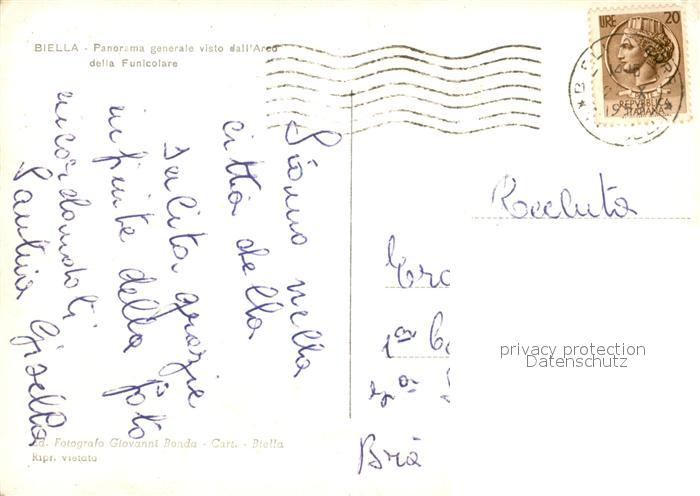 BIELLA - Panorama generale visto dall'Arco
della Funicolare
LIRE 20
REPVBBLICA
ITALIANA
Siamo nella
città della
salita grazie
infinite della foto
ricordandoti
Santina Gisella
Recluta
1a
Brà
privacy protection
Datenschutz
Ed. Fotografo Giovanni Bonda - Cart. - Biella
Ripr. vietata